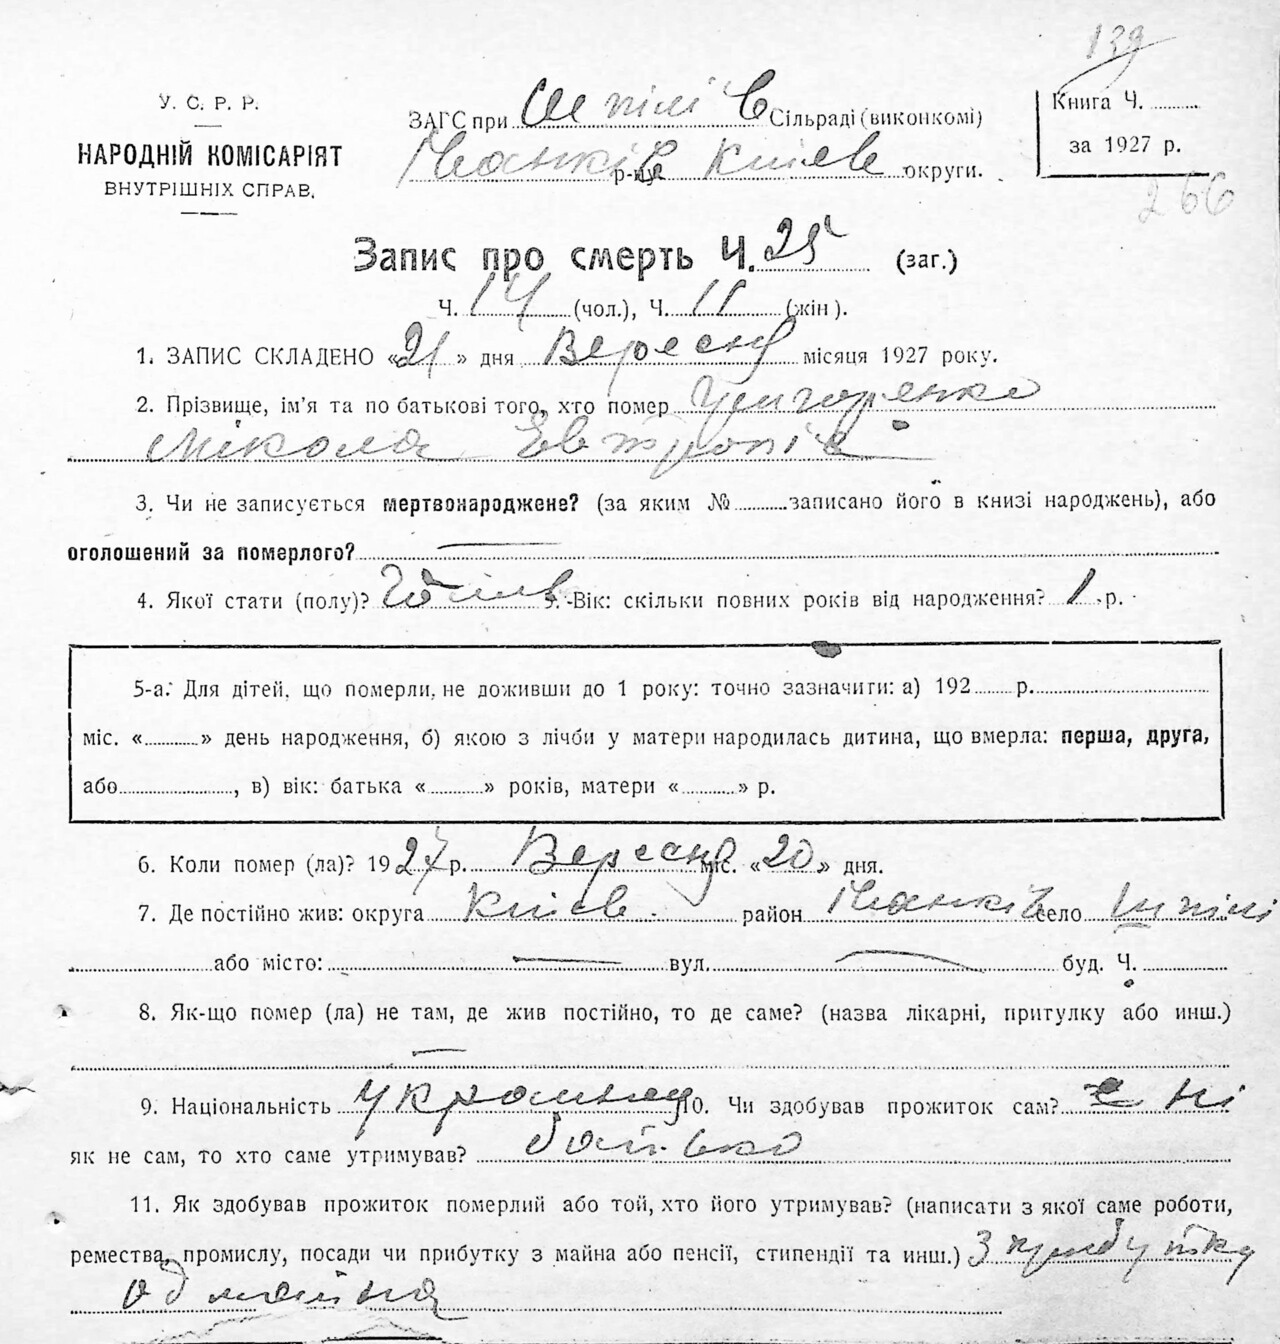 139
У. С. Р. Р.
НАРОДНІЙ КОМІСАРІЯТ
ВНУТРІШНІХ СПРАВ.
ЗАГС при Шпілів Сільраді (виконкомі)
Іванків р-ну Київ округи.
Книга Ч.
за 1927 р.
266
Запис про смерть Ч. 25 (заг.)
Ч. 14 (чол.), Ч. 11 (жін).
1. ЗАПИС СКЛАДЕНО «21» дня Вересня місяця 1927 року.
2. Прізвище, ім'я та по батькові того, хто помер Григоренко
Мікола Евтропів
3. Чи не записується мертвонароджене? (за яким № записано його в книзі народжень), або
оголошений за померлого?
4. Якої стати (полу)? Чолов 5. Вік: скільки повних років від народження? 1 р.
5-а. Для дітей, що померли, не доживши до 1 року: точно зазначити: а) 192 р.
міс. « » день народження, б) якою з лічби у матери народилась дитина, що вмерла: перша, друга,
або , в) вік: батька « » років, матери « » р.
6. Коли помер (ла)? 1927 р. Вересня міс. «20» дня.
7. Де постійно жив: округа Київ район Іванків село Шпілі
або місто: вул. буд. Ч.
8. Як-що помер (ла) не там, де жив постійно, то де саме? (назва лікарні, притулку або инш.)
9. Національність українец 10. Чи здобував прожиток сам? ні
як не сам, то хто саме утримував? батько
11. Як здобував прожиток померлий або той, хто його утримував? (написати з якої саме роботи,
ремества, промислу, посади чи прибутку з майна або пенсії, стипендії та инш.) З прибутку
од майна